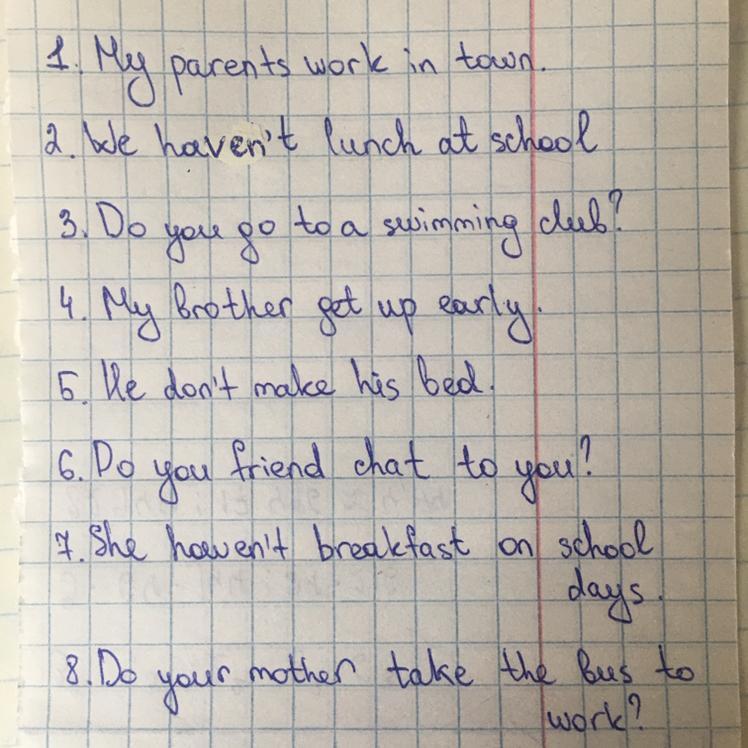 1. My parents work in town.
2. We haven't lunch at school
3. Do you go to a swimming club?
4. My brother get up early.
5. He don't make his bed.
6. Do you friend chat to you?
7. She haven't breakfast on school
days.
8. Do your mother take the bus to
work?